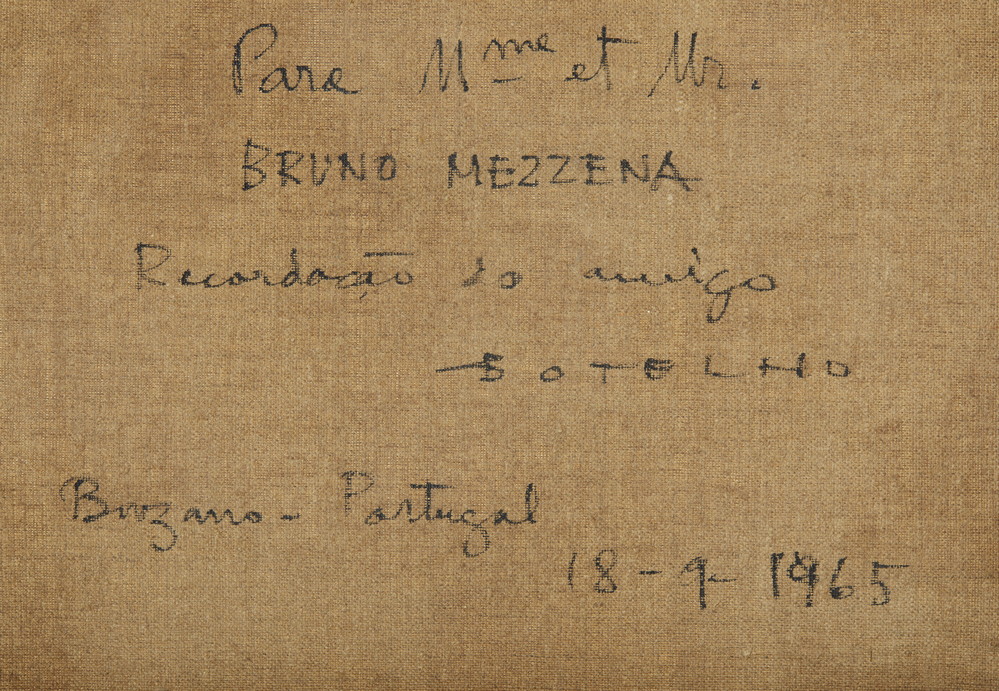 Para Mme et Mr.
BRUNO MEZZENA
Recordação do amigo
BOTELHO
Bozano - Portugal
18-9-1965